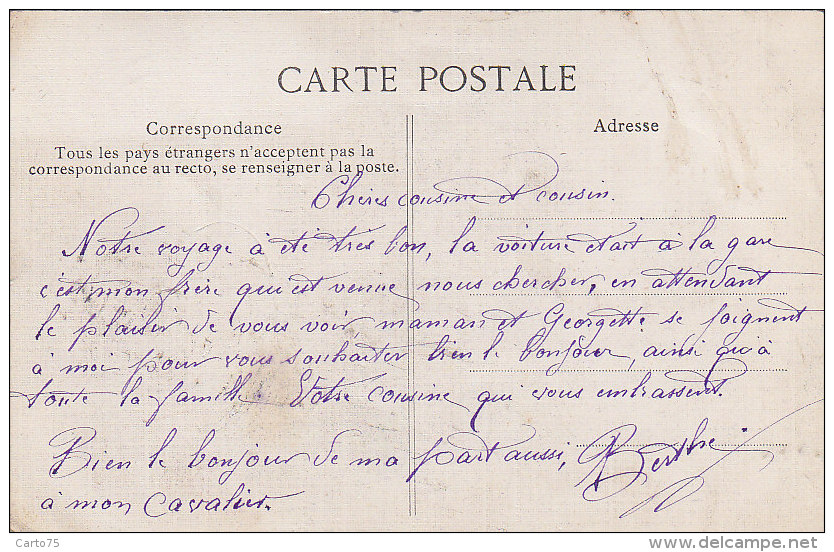 CARTE POSTALE
Correspondance
Adresse
Tous les pays étrangers n'acceptent pas la
correspondance au recto, se renseigner à la poste.
Chères cousine et cousin.
Notre voyage à été très bon, la voiture était à la gare
c'est mon frère qui est venue nous chercher, en attendant
le plaisir de vous voir, maman et Georgette se joignent
à moi pour vous souhaiter bien le bonjour, ainsi qu'à
toute la famille. Votre cousine qui vous embrassent.
Bien le bonjour de ma part aussi, Berthe
à mon Cavalier.
Carto75
www.delcampe.net